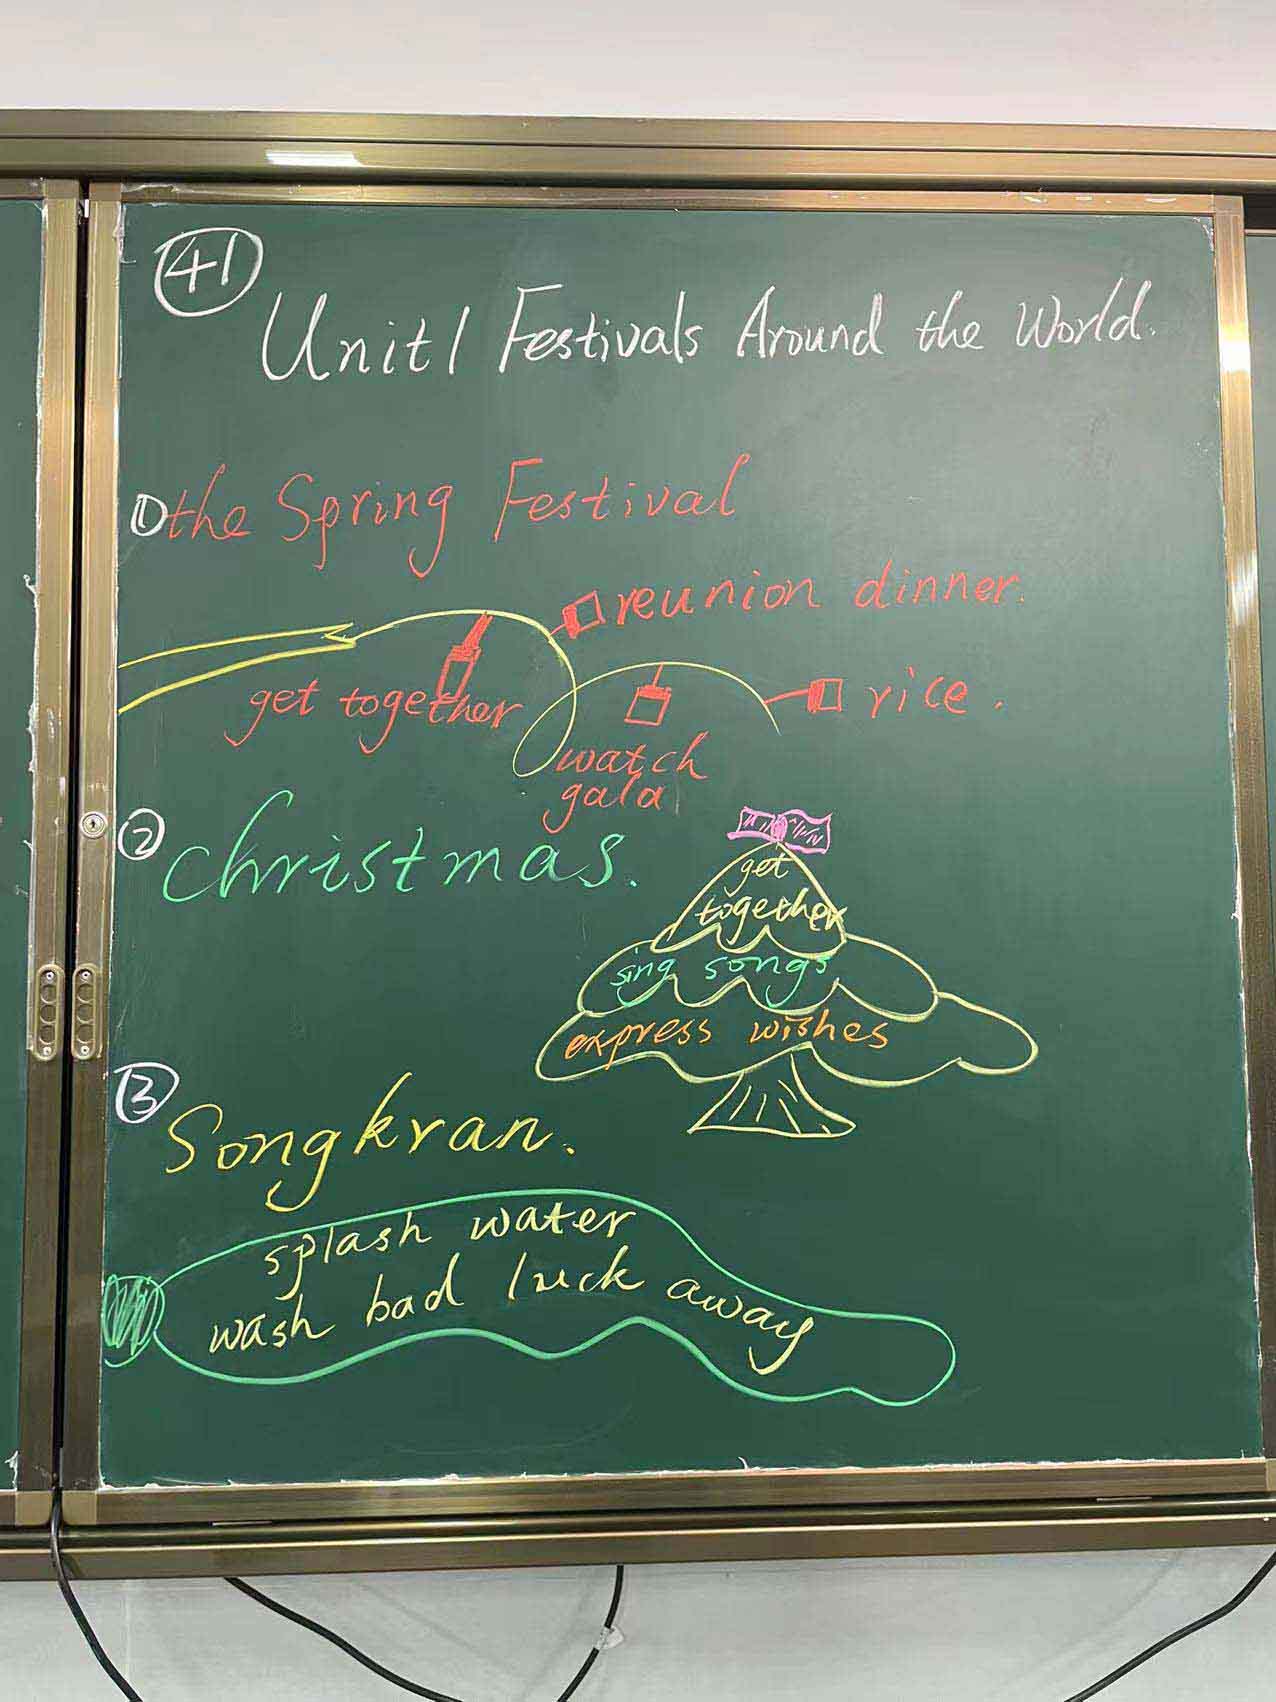 41
Unit 1 Festivals Around the World.
①the Spring Festival
reunion dinner.
get together
rice.
watch
gala
②Christmas.
get
together
sing songs
express wishes
③Songkran.
splash water
wash bad luck away